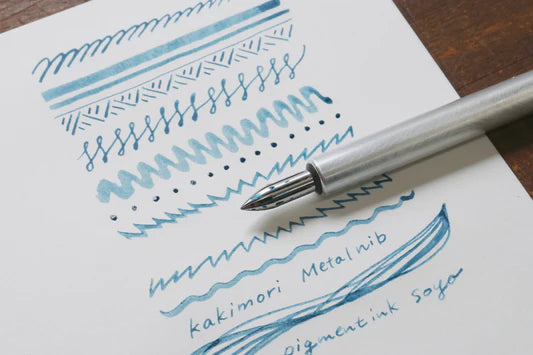 kakimori Metal nib
pigment ink soyo